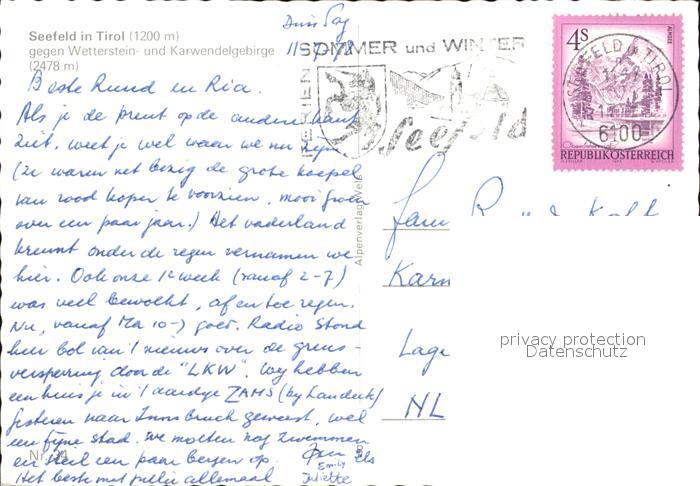 Seefeld in Tirol (1200 m)
gegen Wetterstein- und Karwendelgebirge
(2478 m)
Dinsdag
11-7-78
SOMMER und WINTER
FERIEN
Seefeld
4S
SEEFELD TIROL
6100
REPUBLIK ÖSTERREICH
Beste Ruud en Ria.
Als je de prent op de andere kant
ziet, weet je wel waar we nu zijn
(ze waren net bezig de grote koepel
van rood koper te voorzien, mooi groen
over een paar jaar.) Het vaderland
kreunt onder de regen vernamen we
hier. Ook onze 1e week (vanaf 2-7)
was veel bewolkt, af en toe regen.
Nu, vanaf Ma 10-) goed. Radio stond
hier bol van 't nieuws over de grens-
versperring door de "LKW". Wij hebben
een huis je in 't aardige ZAMS (bij Landeck)
gisteren naar Innsbruck geweest, wel
een fijne stad. We moeten nog zwemmen
en steil een paar bergen op.
Het beste met jullie allemaal
Els
Emily
Juliette
Nr. 24
Alpenverlag Wels
Fam R
Karn
Lage
NL
privacy protection
Datenschutz